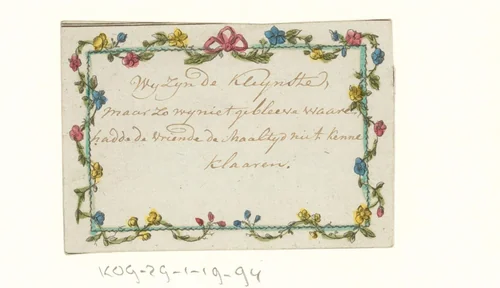 Wy Zyn de Kleynste,
maar Zo wy niet gebleeve waare
hadde de vriende de Maaltyd niet kenne
Klaaren.
KOG-ZG-1-19-94